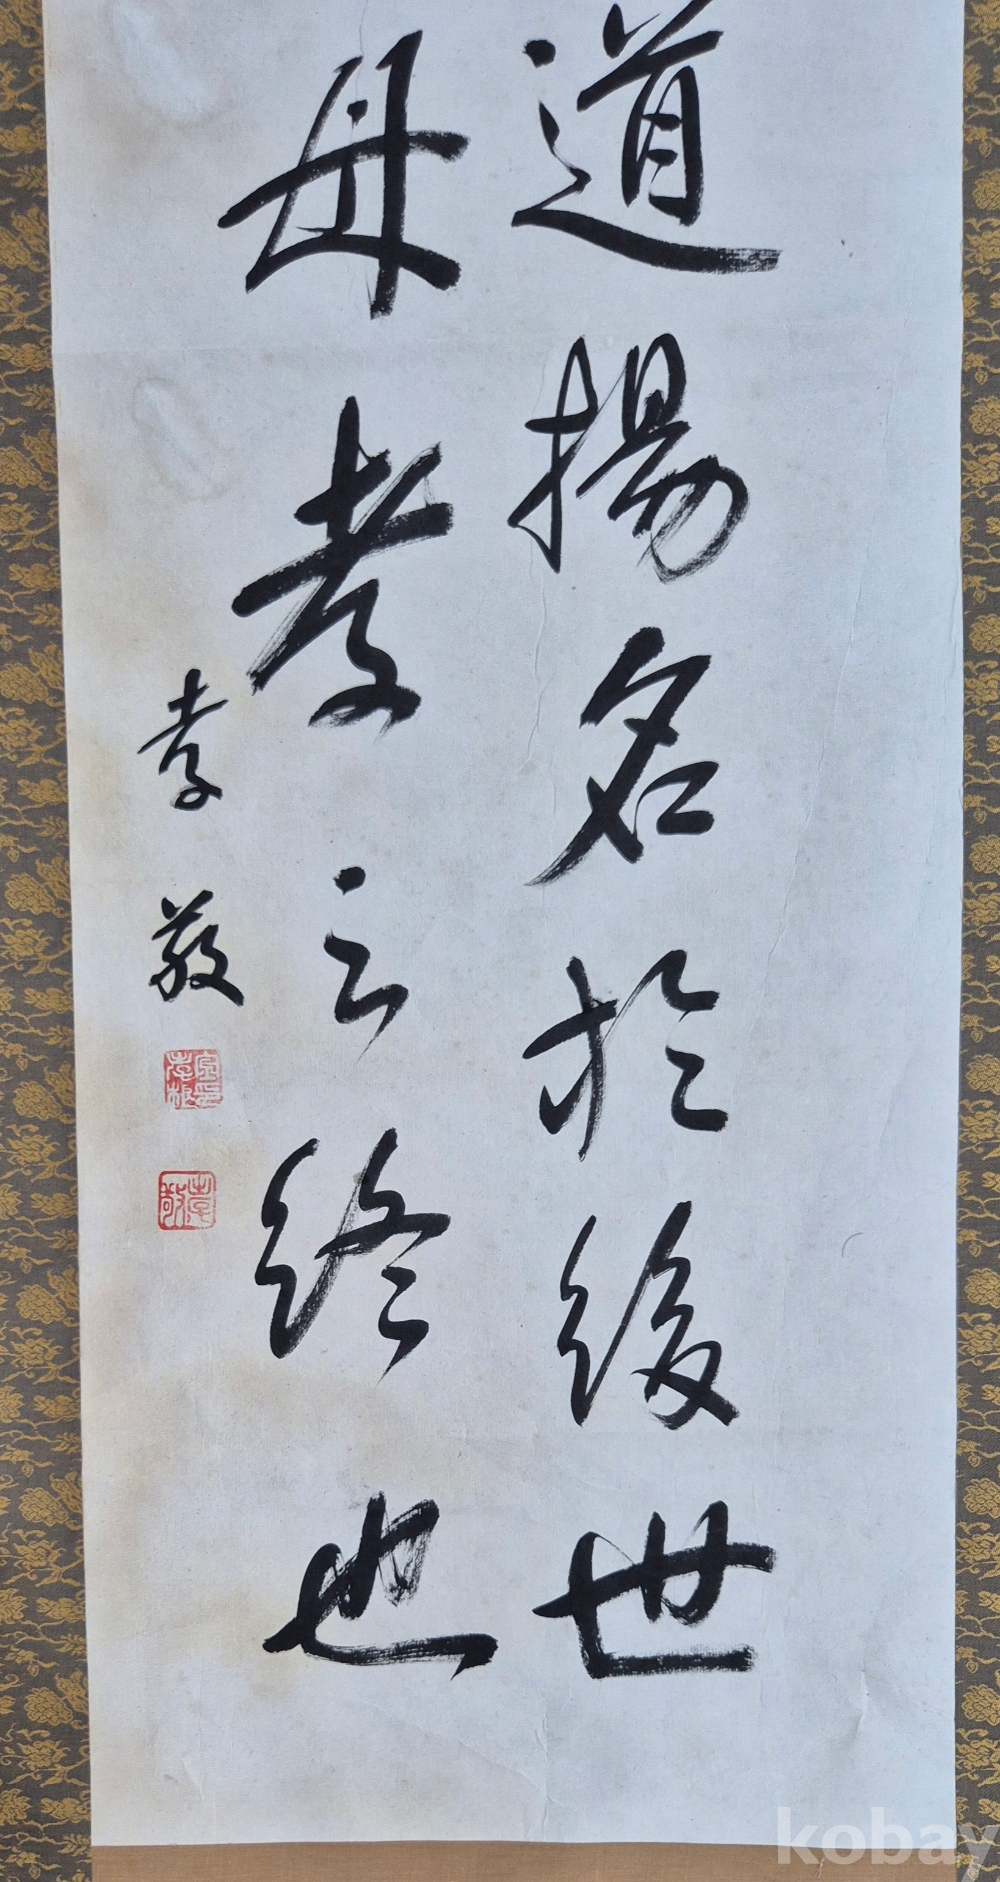 道揚名於後世
母孝之終也
孝敬
kobay